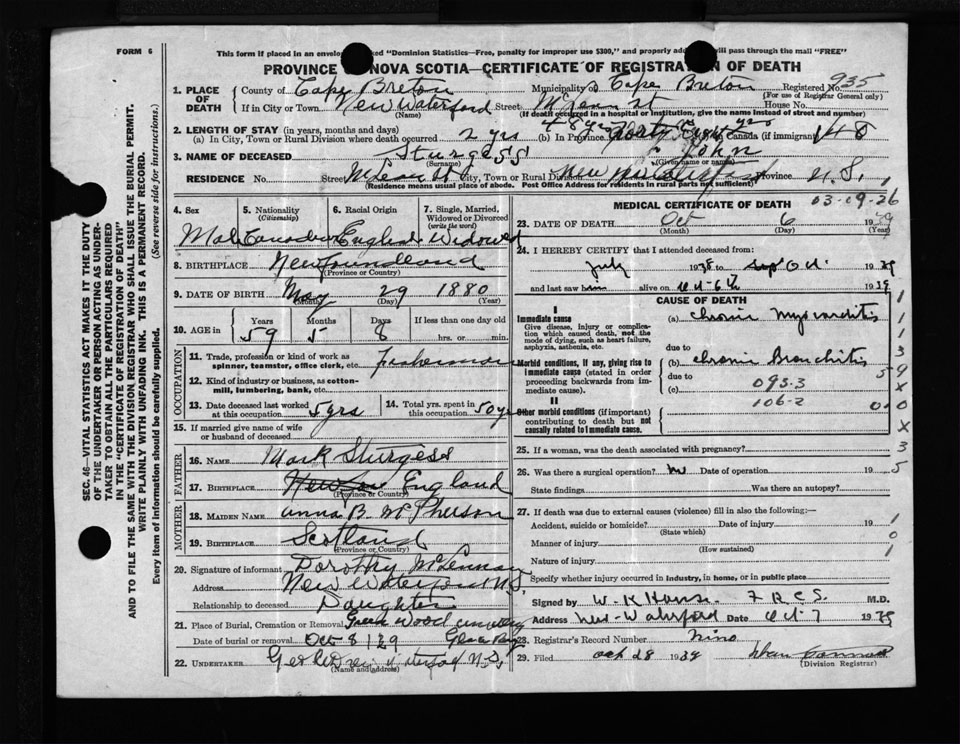 FORM 6
This form if placed in an envelo ked "Dominion Statistics—Free, penalty for improper use $300," and properly add will pass through the mail "FREE"
PROVINCE NOVA SCOTIA—CERTIFICATE OF REGISTRATION OF DEATH
1. PLACE OF DEATH
County of Cape Breton Municipality of Cape Breton Registered No. 935
(For use of Registrar General only)
If in City or Town New Waterford Street McLean St House No.
(Name) (If death occurred in a hospital or institution, give the name instead of street and number)
2. LENGTH OF STAY (in years, months and days)
(a) In City, Town or Rural Division where death occurred 2 yrs (b) In Province Forty Eight yrs Canada (if immigrant) 48
3. NAME OF DECEASED Sturgess John
(Surname) (Given name or names)
RESIDENCE No. Street McLean St City, Town or Rural Division New Waterford Province N.S.
(Residence means usual place of abode. Post Office Address for residents in rural parts not sufficient)
4. Sex 5. Nationality (Citizenship) 6. Racial Origin 7. Single, Married, Widowed or Divorced (write the word)
Male Canadian English Widowed
8. BIRTHPLACE Newfoundland
(Province or Country)
9. DATE OF BIRTH May 29 1880
(Month) (Day) (Year)
10. AGE in Years Months Days If less than one day old
59 5 8 hrs. or min.
OCCUPATION
11. Trade, profession or kind of work as spinner, teamster, office clerk, etc. fisherman
12. Kind of industry or business, as cotton-mill, lumbering, bank, etc.
13. Date deceased last worked at this occupation 5 yrs 14. Total yrs. spent in this occupation 50 yrs
15. If married give name of wife or husband of deceased
FATHER
16. Name Mark Sturgess
17. Birthplace England
(Province or Country)
MOTHER
18. Maiden Name Anna B. McPherson
19. Birthplace Scotland
(Province or Country)
20. Signature of informant Dorothy McLennan
Address New Waterford N.S.
Relationship to deceased Daughter
21. Place of Burial, Cremation or Removal Green Wood cemetery
Date of burial or removal Oct 8 / 39 Glace Bay
22. Undertaker N.S.
(Name and address)
MEDICAL CERTIFICATE OF DEATH
03-09-26
23. DATE OF DEATH Oct 6 1939
(Month) (Day) (Year)
24. I HEREBY CERTIFY that I attended deceased from:
July 1938 to Oct. 1939
and last saw him alive on Oct-6th 1939
CAUSE OF DEATH
I
Immediate cause (a) Chronic Myocarditis
Give disease, injury or complication which caused death, not the mode of dying, such as heart failure, asphyxia, asthenia, etc.
due to
Morbid conditions, if any, giving rise to immediate cause (stated in order proceeding backwards from immediate cause).
(b) Chronic Bronchitis
due to 093-3
(c)
106-2
II
Other morbid conditions (if important) contributing to death but not causally related to immediate cause.
1
1
1
3
59
X
010
X
3
5
1
0
1
25. If a woman, was the death associated with pregnancy?
26. Was there a surgical operation? no Date of operation 19
State findings Was there an autopsy?
27. If death was due to external causes (violence) fill in also the following:—
Accident, suicide or homicide? Date of injury 19
(State which)
Manner of injury
(How sustained)
Nature of injury
Specify whether injury occurred in industry, in home, or in public place
Signed by W. K. F.R.C.S. M.D.
Address New-Waterford Date Oct-7 1939
28. Registrar's Record Number Nino
29. Filed Oct 28 1939
(Division Registrar)
SEC. 46—VITAL STATISTICS ACT MAKES IT THE DUTY
OF THE UNDERTAKER OR PERSON ACTING AS UNDER-
TAKER TO OBTAIN ALL THE PARTICULARS REQUIRED
IN THE "CERTIFICATE OF REGISTRATION OF DEATH"
AND TO FILE THE SAME WITH THE DIVISION REGISTRAR WHO SHALL ISSUE THE BURIAL PERMIT.
WRITE PLAINLY WITH UNFADING INK. THIS IS A PERMANENT RECORD.
Every item of information should be carefully supplied. (See reverse side for instructions.)